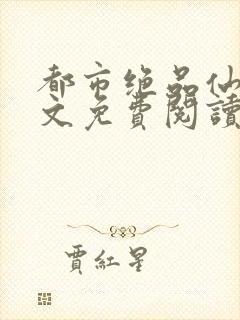 都市绝品仙
文免費閱讀
賈紅星